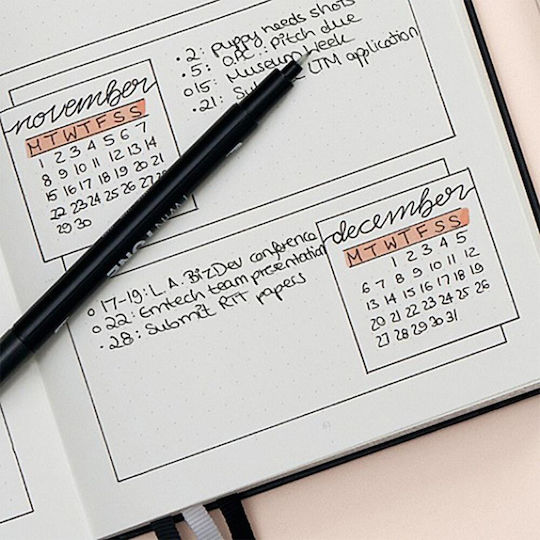 • 2: puppy needs shots
• 5: O.P.C.: Pitch due
o 15: Museum Week
• 21: UTM application
november
M T W T F S S
1 2 3 4 5 6 7
8 9 10 11 12 13 14
15 16 17 18 19 20 21
22 23 24 25 26 27 28
29 30
TWINTONE
december
M T W T F S S
1 2 3 4 5
6 7 8 9 10 11 12
13 14 15 16 17 18 19
20 21 22 23 24 25 26
27 28 29 30 31
o 17-19: L.A. BizDev conference
o 22: Emtech team presentation
• 28: Submit RTT papers